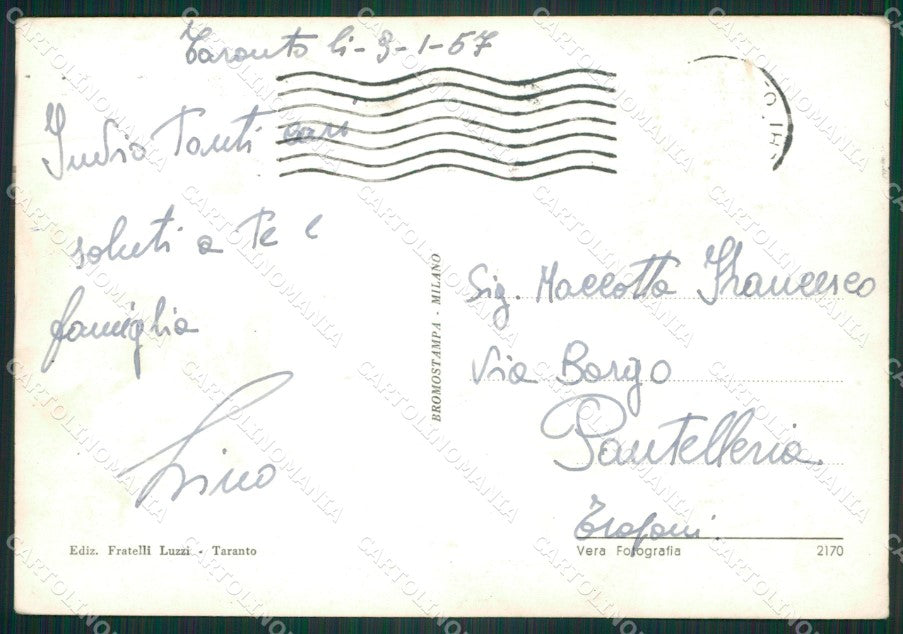 Taranto li- 3-1-57
Invio Tanti cari
saluti a Te e
famiglia
Lino
Sig. Maccotta Francesco
Via Borgo
Pantelleria
Trapani.
BROMOSTAMPA - MILANO
Ediz. Fratelli Luzzi - Taranto
Vera Fotografia 2170
CARTOLINOMANIA